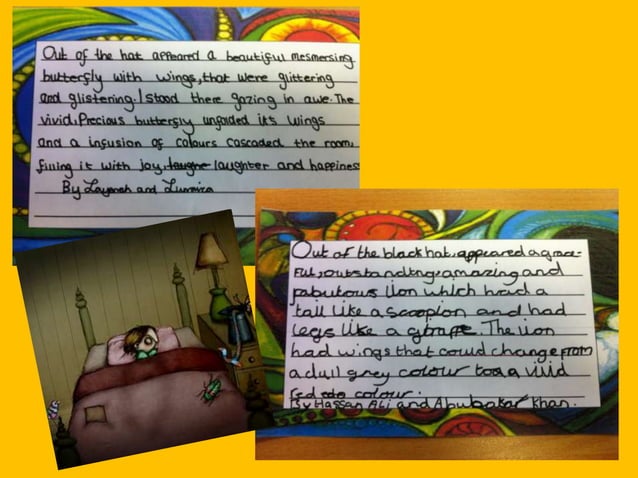 Out of the hat appeared a beautiful mesmersing
butterfly with wings, that were glittering
and glistering. I stood there gazing in awe. The
vivid, Precious butterfly unfolded it's wings
and a infusion of colours cascaded the room,
filling it with joy, laughte laughter and happiness
By Layenah and Lumaira
Out of the black hat, appeared a grace-
ful, outstanding, amazing and
fabulous lion which had a
tail like a scorpion and had
legs like a girape. The lion
had wings that could change from
a dull grey colour to a vivid
red colour.
By Hassan Ali and Abubakar Khan.